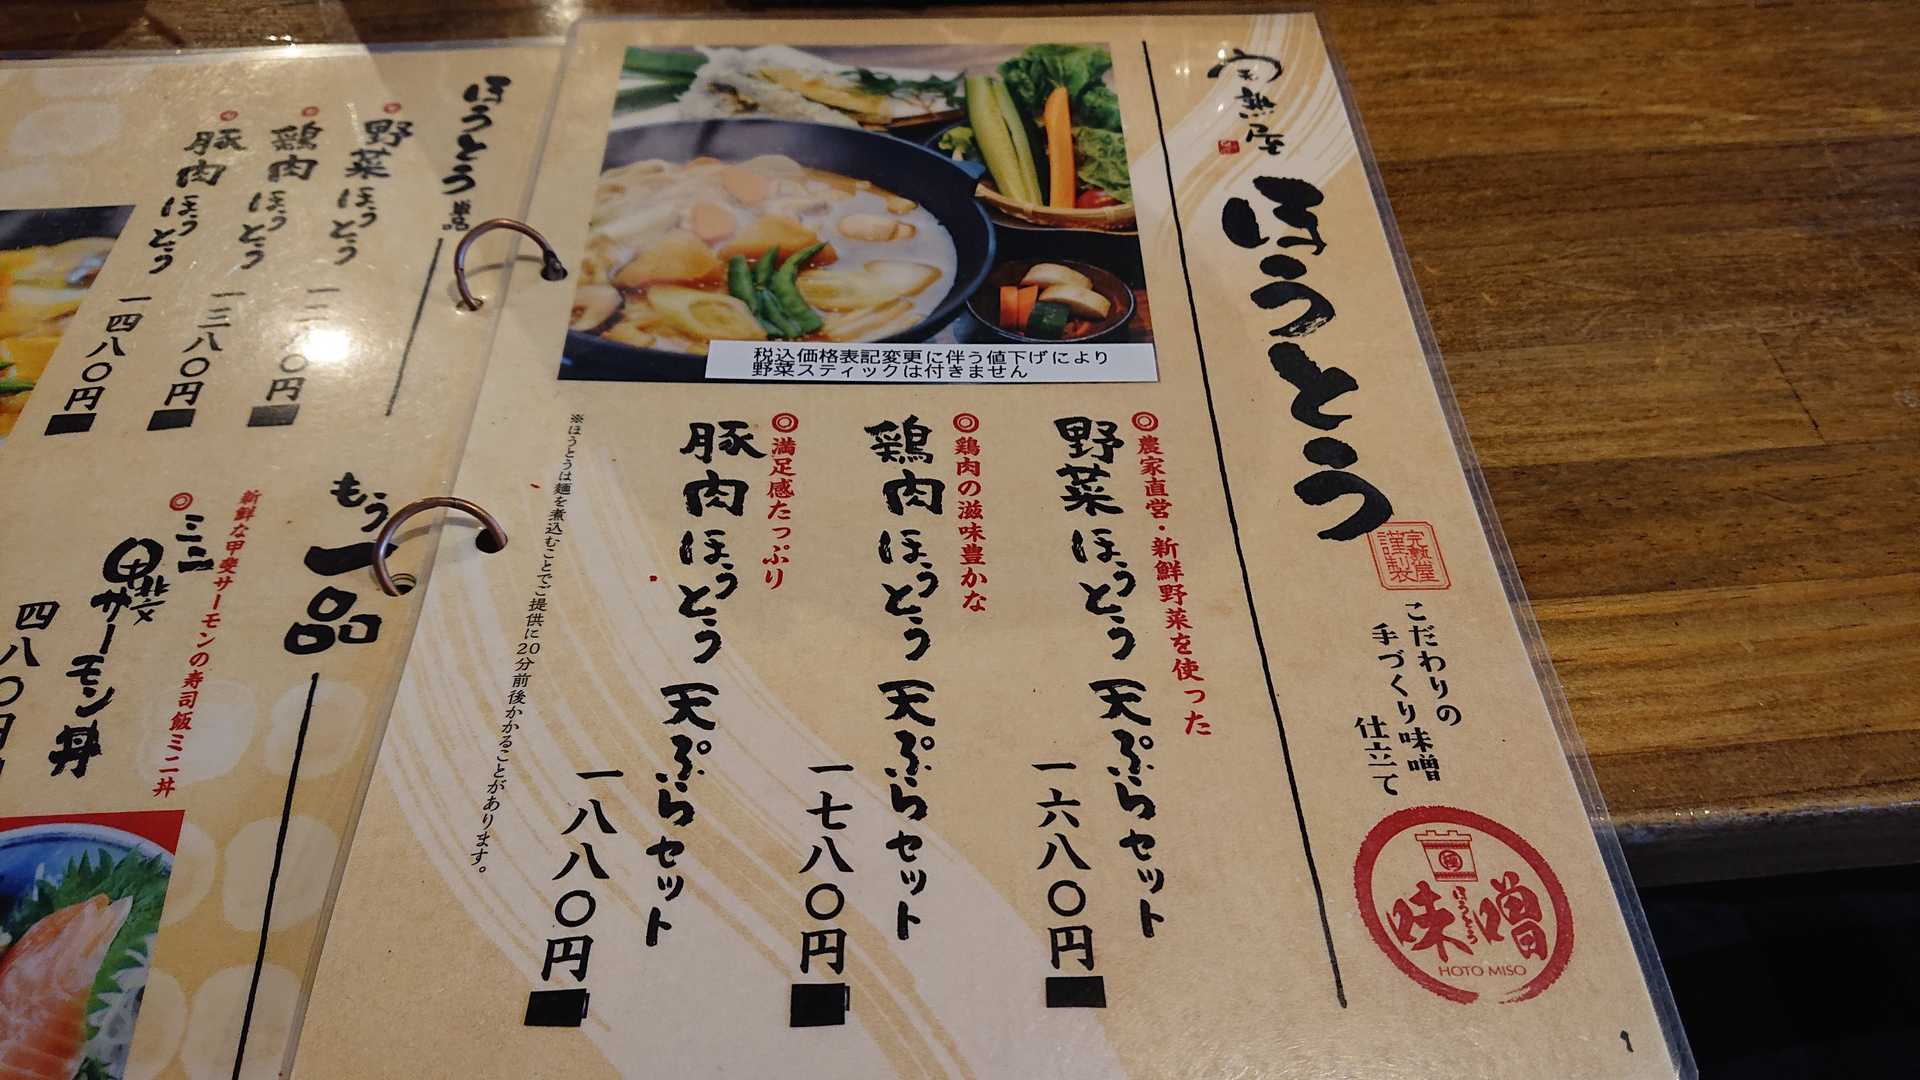 完熟屋
ほうとう
完熟屋
謹製
こだわりの
手づくり味噌
仕立て
ほうとう
味噌
HOTO MISO
税込価格表記変更に伴う値下げにより
野菜スティックは付きません
◎農家直営・新鮮野菜を使った
野菜ほうとう 天ぷらセット
一六八〇円
◎鶏肉の滋味豊かな
鶏肉ほうとう 天ぷらセット
一七八〇円
◎満足感たっぷり
豚肉ほうとう 天ぷらセット
一八八〇円
※ほうとうは麺を煮込むことでご提供に20分前後かかることがあります。
1
ほうとう 単品
野菜ほうとう
鶏肉ほうとう
一三八〇円
豚肉ほうとう
一四八〇円
もう一品
新鮮な甲斐サーモンの寿司飯ミニ丼
◎ミニ
甲斐サーモン丼
四八〇円